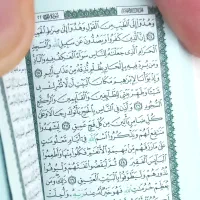 وَهُدُوٓا۟ إِلَى ٱلطَّيِّبِ مِنَ ٱلْقَوْلِ وَهُدُوٓا۟ إِلَىٰ صِرَٰطِ ٱلْحَمِيدِ
إِنَّ ٱلَّذِينَ كَفَرُوا۟ وَيَصُدُّونَ عَن سَبِيلِ ٱللَّهِ وَٱلْمَسْجِدِ
ٱلْحَرَامِ ٱلَّذِى جَعَلْنَٰهُ لِلنَّاسِ سَوَآءً ٱلْعَٰكِفُ فِيهِ وَٱلْبَادِ
وَمَن يُرِدْ فِيهِ بِإِلْحَادٍۭ بِظُلْمٍ نُّذِقْهُ مِنْ عَذَابٍ أَلِيمٍ
وَإِذْ بَوَّأْنَا لِإِبْرَٰهِيمَ مَكَانَ ٱلْبَيْتِ أَن لَّا تُشْرِكْ بِى
شَيْـًٔا وَطَهِّرْ بَيْتِىَ لِلطَّآئِفِينَ وَٱلْقَآئِمِينَ وَٱلرُّكَّعِ
ٱلسُّجُودِ ٢٦ وَأَذِّن فِى ٱلنَّاسِ بِٱلْحَجِّ يَأْتُوكَ رِجَالًا وَعَلَىٰ
كُلِّ ضَامِرٍ يَأْتِينَ مِن كُلِّ فَجٍّ عَمِيقٍ ٢٧ لِّيَشْهَدُوا۟
مَنَٰفِعَ لَهُمْ وَيَذْكُرُوا۟ ٱسْمَ ٱللَّهِ فِىٓ أَيَّامٍ مَّعْلُومَٰتٍ
عَلَىٰ مَا رَزَقَهُم مِّنۢ بَهِيمَةِ ٱلْأَنْعَٰمِ فَكُلُوا۟ مِنْهَا وَأَطْعِمُوا۟
ٱلْبَآئِسَ ٱلْفَقِيرَ ٢٨ ثُمَّ لْيَقْضُوا۟ تَفَثَهُمْ وَلْيُوفُوا۟
نُذُورَهُمْ وَلْيَطَّوَّفُوا۟ بِٱلْبَيْتِ ٱلْعَتِيقِ ٢٩ ذَٰلِكَ وَمَن